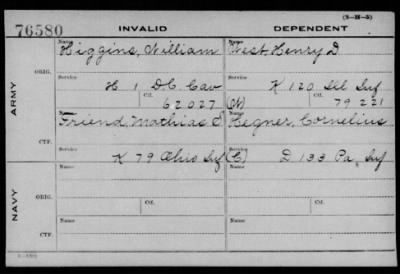 (3-H-5)
76580 INVALID DEPENDENT
Name Name
Higgins, William West, Henry D.
ORIG. Service Service
H 1 DC Cav K 120 Ill Inf
Ctf. Ctf.
62027 (W) 79221
ARMY
Name Name
Friend, Mathias Hegner, Cornelius
CTF. Service Service
K 79 Ohio Inf (C) D 133 Pa. Inf
Name Name
ORIG. Service Ctf. Service Ctf.
NAVY
Name Name
CTF. Service Service